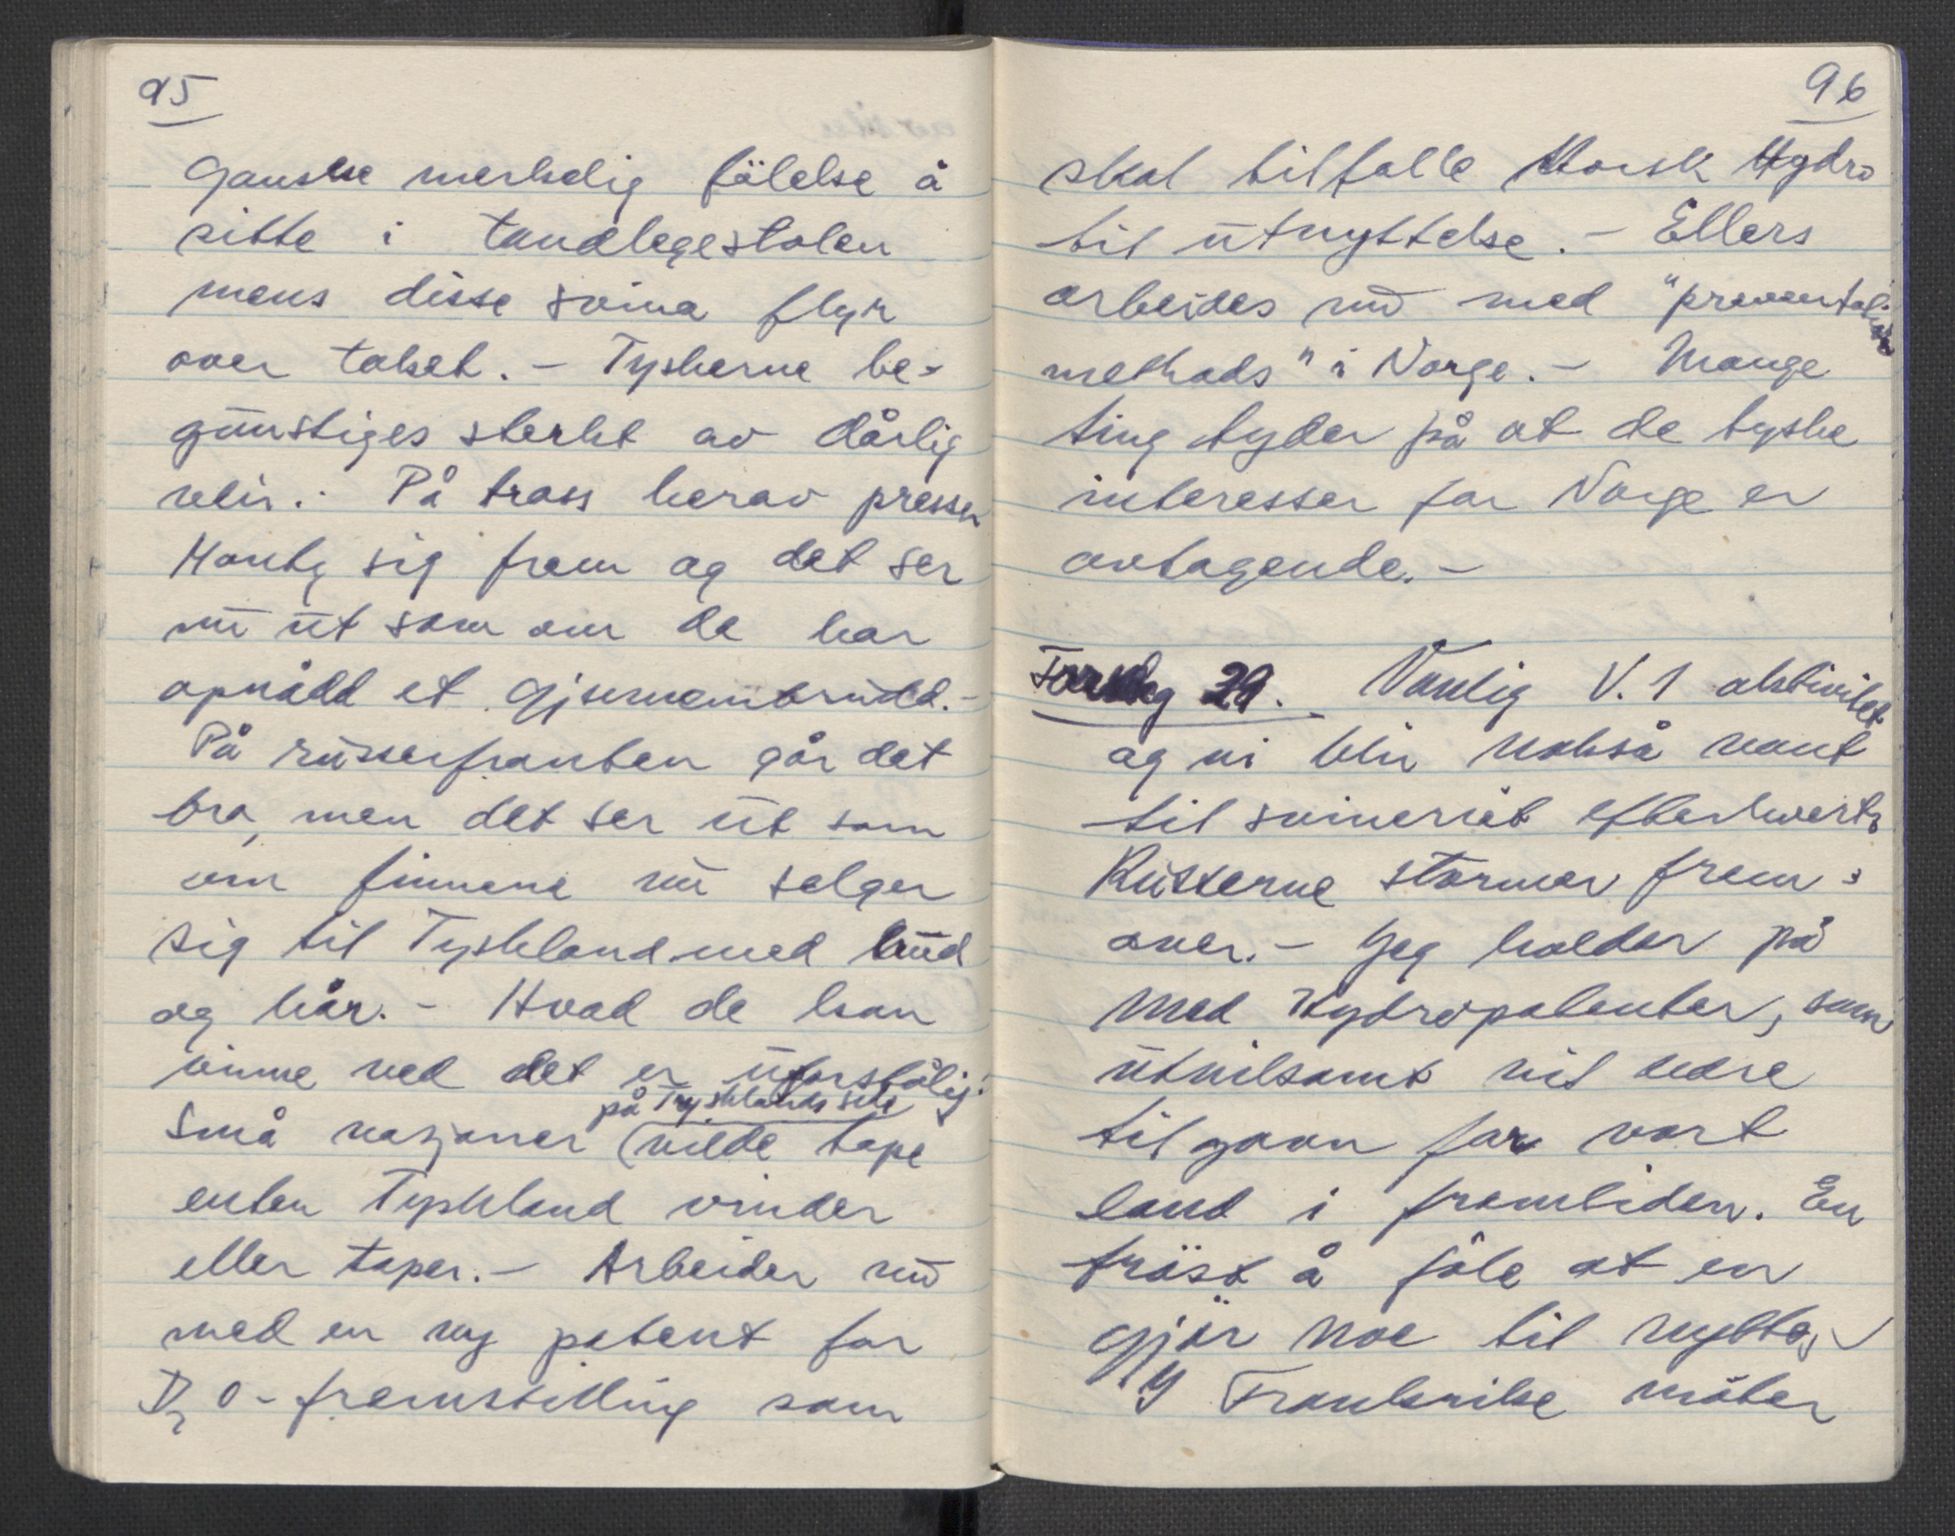 95
Ganske merkelig fölelse å
sitte i tandlegestolen
mens disse svina flyr
over taket. - Tyskerne be-
günstiges sterkt av dårlig
veir. På tross herav presser
Monty sig frem og det ser
nū ūt som om de har
opnådd et gjennembrūdd. -
På rūsserfronten går det
bra, men det ser ūt som
om finnene nū selger
sig til Tyskland med hūd
og hår. - Hvad de kan
vinne ved det er ūforståelig.
på Tysklands side
Små nasjoner (vilde tape
enten Tyskland vinder
eller taper. - Arbeider nū
med en ny patent for
D2O-fremstilling som
96
skal tilfalle Norsk Hydro
til ūtnyttelse. - Ellers
arbeides nū med "preventative
methods" i Norge. - Mange
ting tyder på at de tyske
interesser for Norge er
avtagende. -
Torsdag 29. Vanlig V.1 aktivitet
og vi blir också vant
til svineriet efterhvert.
Rūsserne stormer frem-
over. - Jeg holder på
med Hydropatenter, som
ūtvilsomt vil være
til gavn for vort
land i fremtiden. En
tröst å föle at en
gjör noe til nytte,
I Frankrike möter